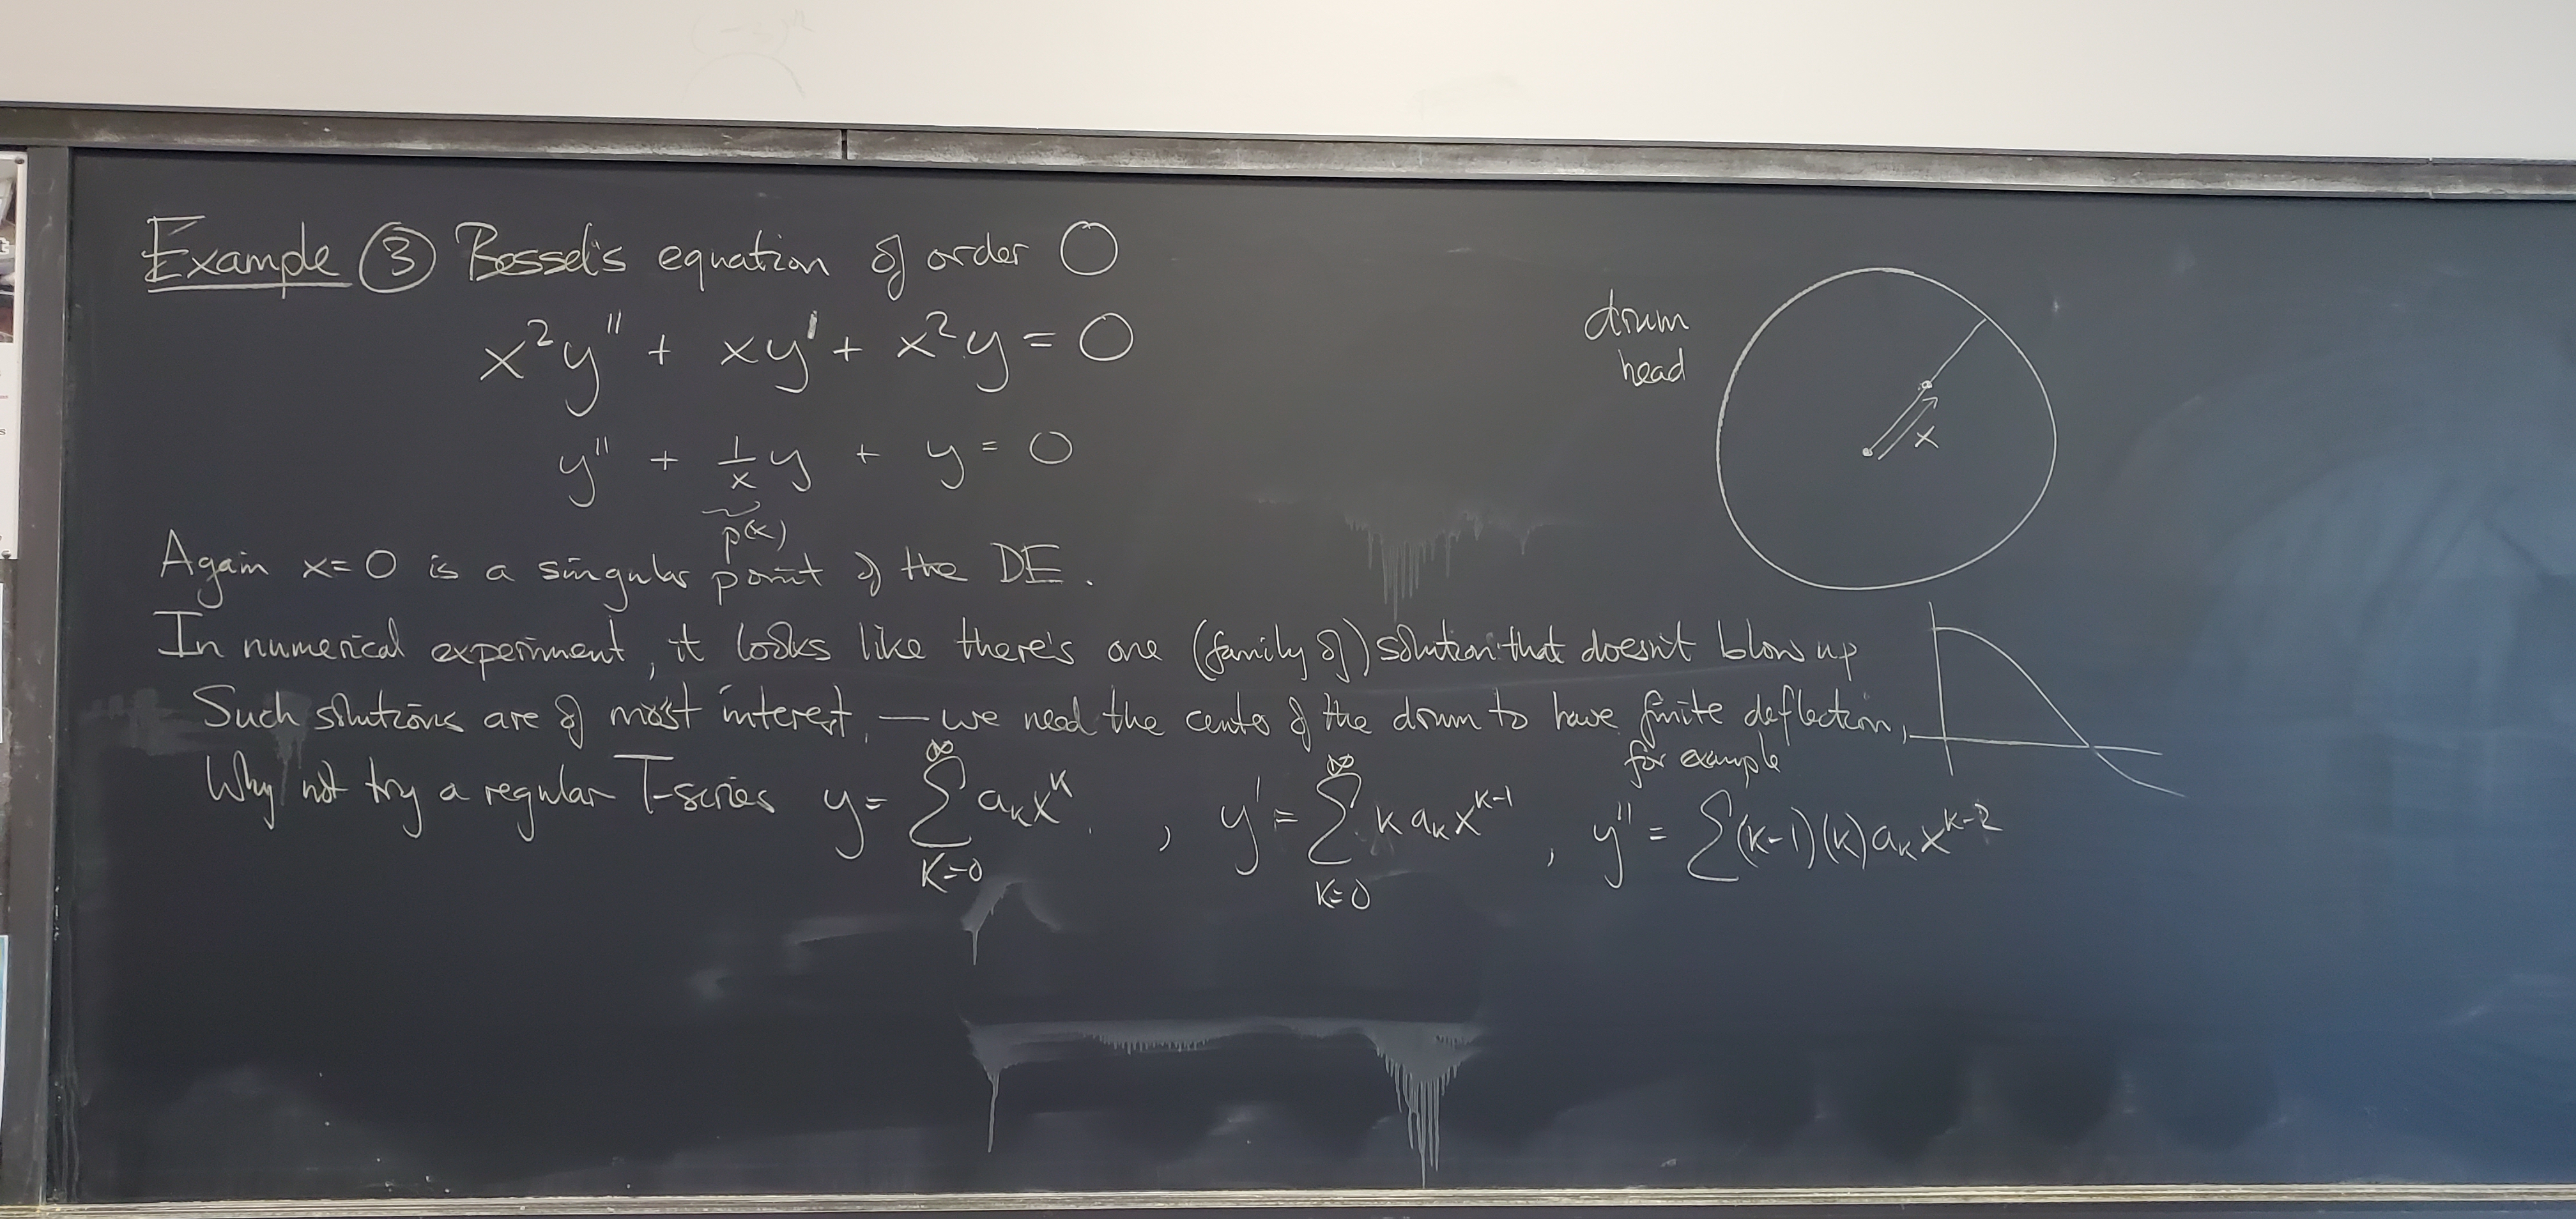 Example ③ Bessel's equation of order 0
x²y'' + xy' + x²y = 0
y'' + 1/x y + y = 0
p(x)
drum
head
x
Again x=0 is a singular point of the DE.
In numerical experiment, it looks like there's one (family of) solution that doesn't blow up
Such solutions are of most interest, — we need the center of the drum to have finite deflection,
for example
Why not try a regular T-series y = ∑_{k=0}^{∞} a_k x^k , y' = ∑_{k=0}^{∞} k a_k x^{k-1} , y'' = ∑(k-1)(k) a_k x^{k-2}